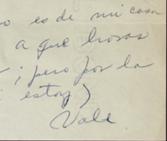 o es de mi casa
a que horas
¡pero por la
estoy)
Vale